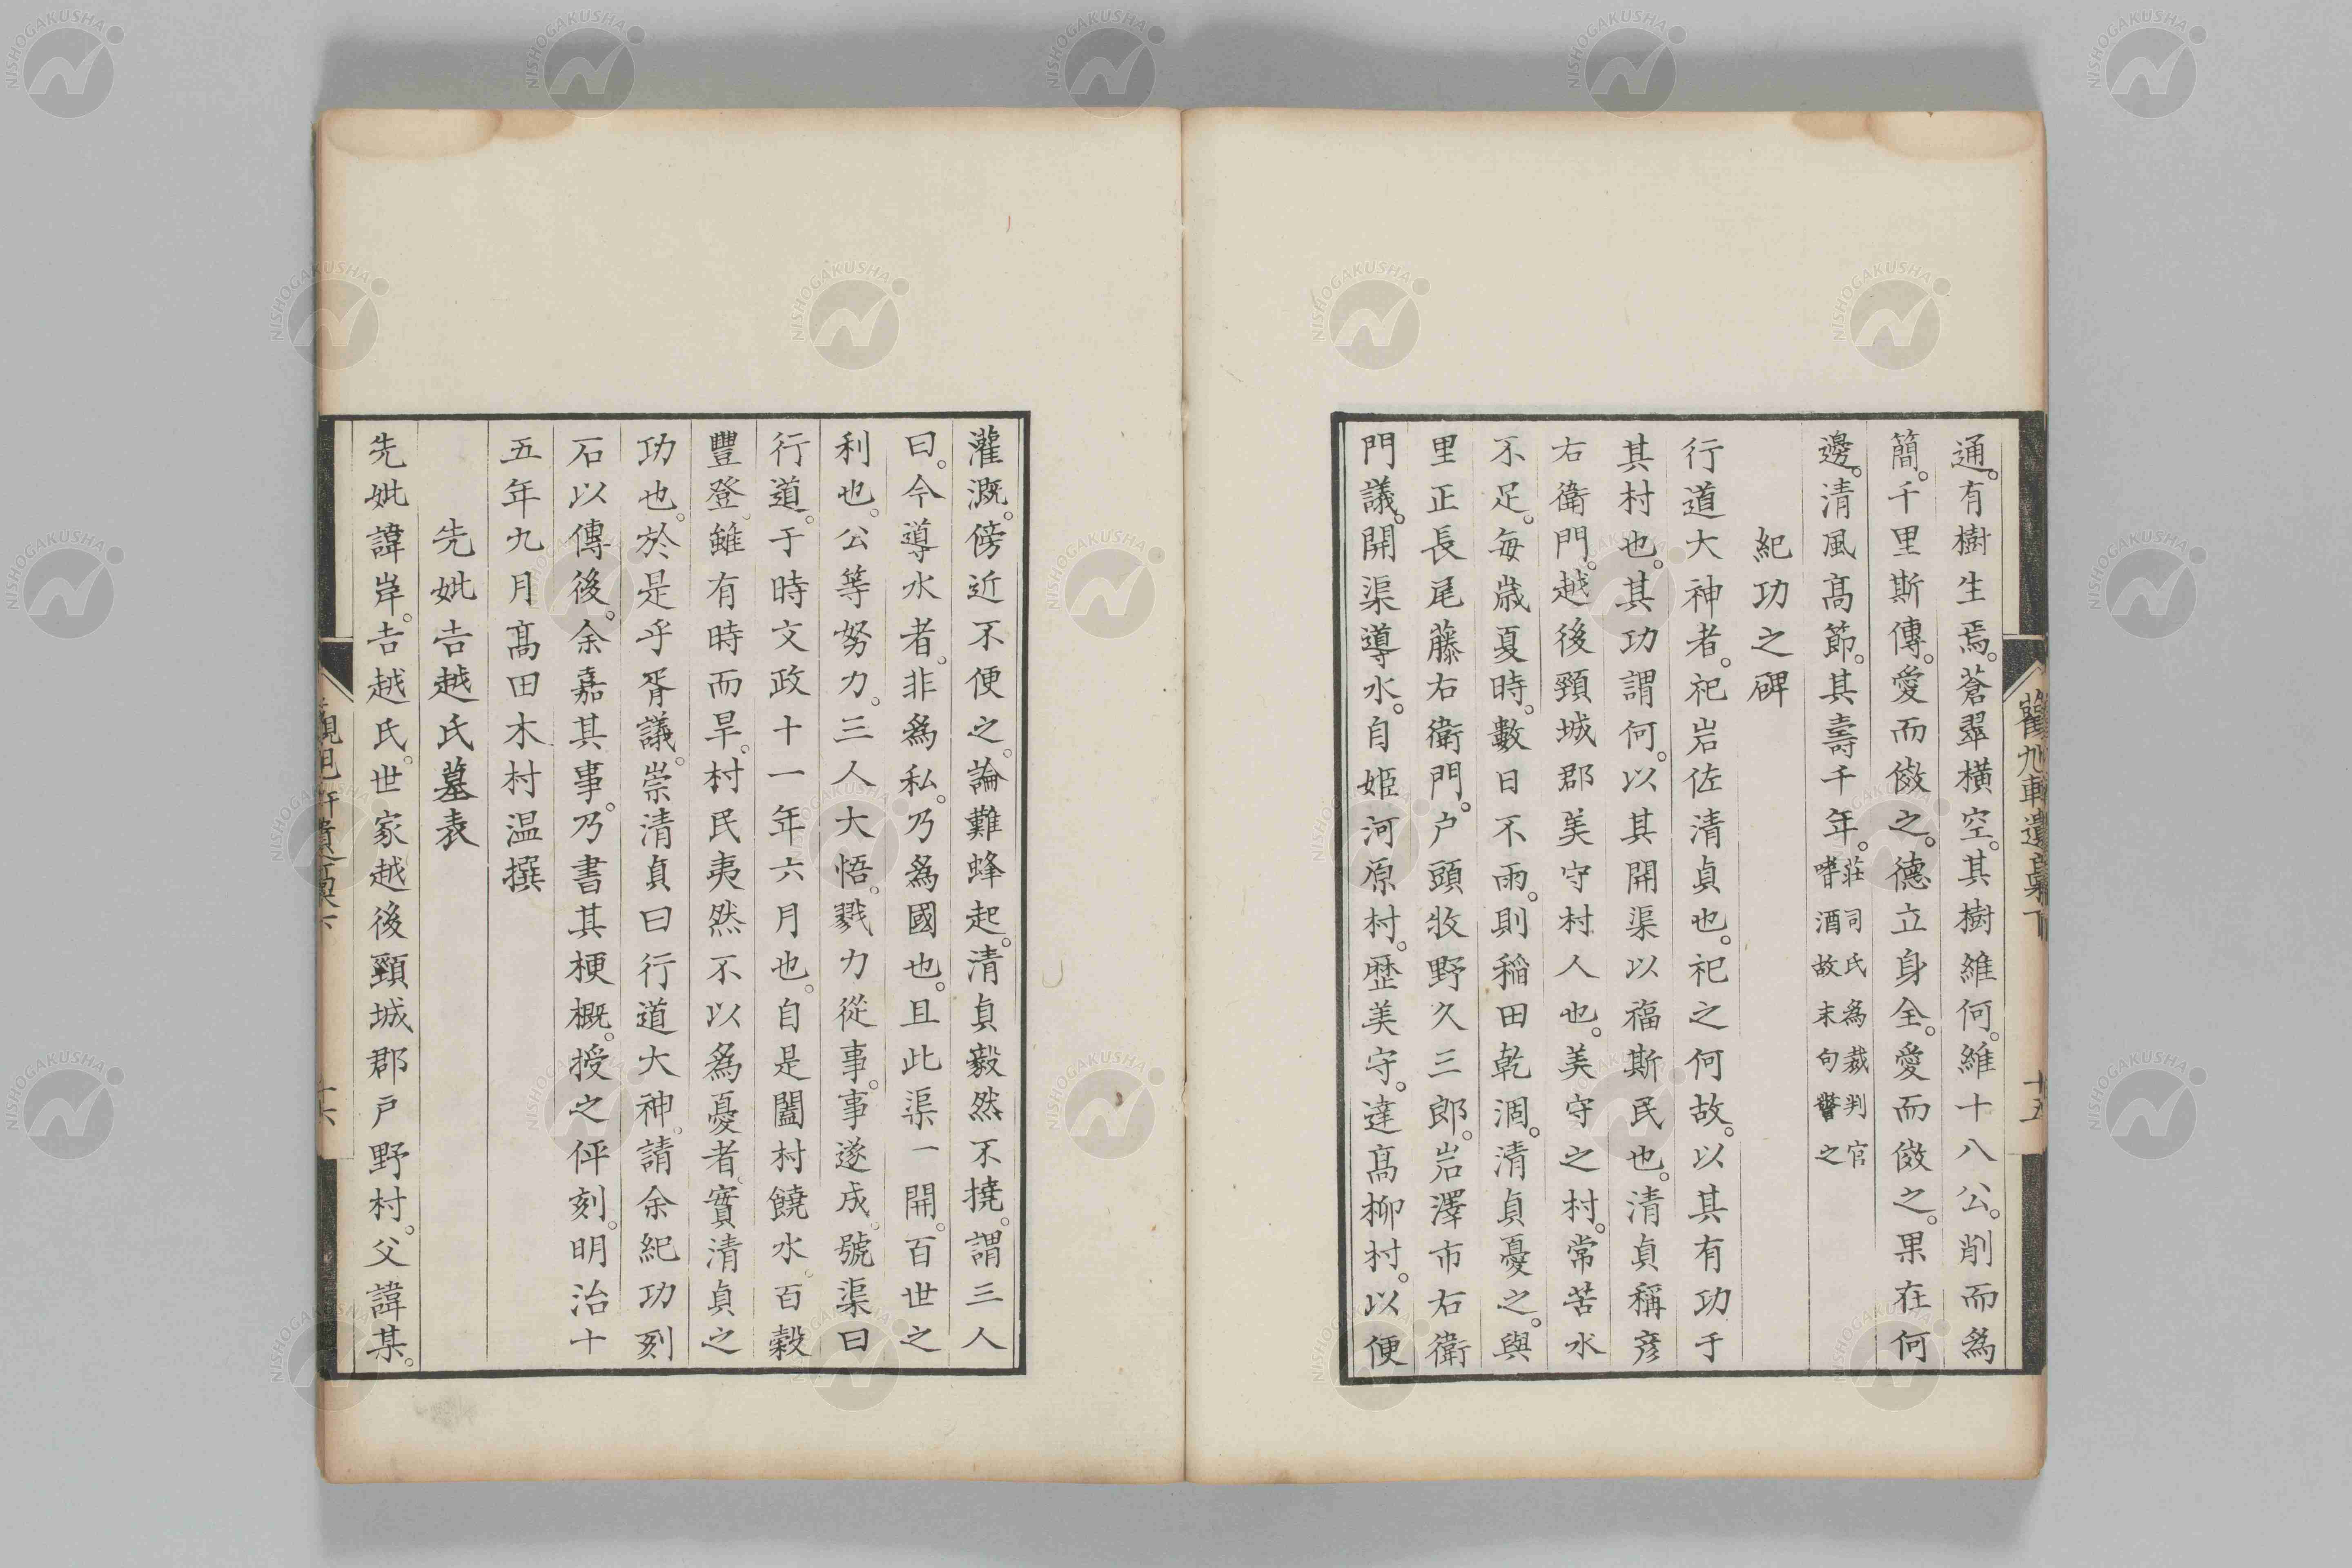 通。有樹生焉。蒼翠横空。其樹維何。維十八公。削而爲
簡。千里斯傳。愛而傚之。德立身全。愛而傚之。果在何
邊。清風髙節。其壽千年。
莊司氏爲裁判官
嗜酒故末句警之
紀功之碑
行道大神者。祀岩佐清貞也。祀之何故。以其有功于
其村也。其功謂何。以其開渠以福斯民也。清貞稱彦
右衛門。越後頸城郡美守村人也。美守之村。常苦水
不足。每歳夏時。數日不雨。則稲田乾涸。清貞憂之。與
里正長尾藤右衛門。户頭牧野久三郎。岩澤市右衛
門議。開渠導水。自姫河原村。歴美守。達髙柳村。以便
灌漑。傍近不便之。論難蜂起。清貞毅然不撓。謂三人
曰。今導水者。非爲私。乃爲國也。且此渠一開。百世之
利也。公等努力。三人大悟。戮力從事。事遂成。號渠曰
行道。于時文政十一年六月也。自是闔村饒水。百穀
豐登。雖有時而旱。村民夷然不以爲憂者。實清貞之
功也。於是乎胥議。崇清貞曰行道大神。請余紀功刻
石以傳後。余嘉其事。乃書其梗概。授之伻刻。明治十
五年九月髙田木村温撰
先妣吿越氏墓表
先妣諱岸。吿越氏。世家越後頸城郡戸野村。父諱某。
遺稾下
十五
十六
NISHOGAKUSHA